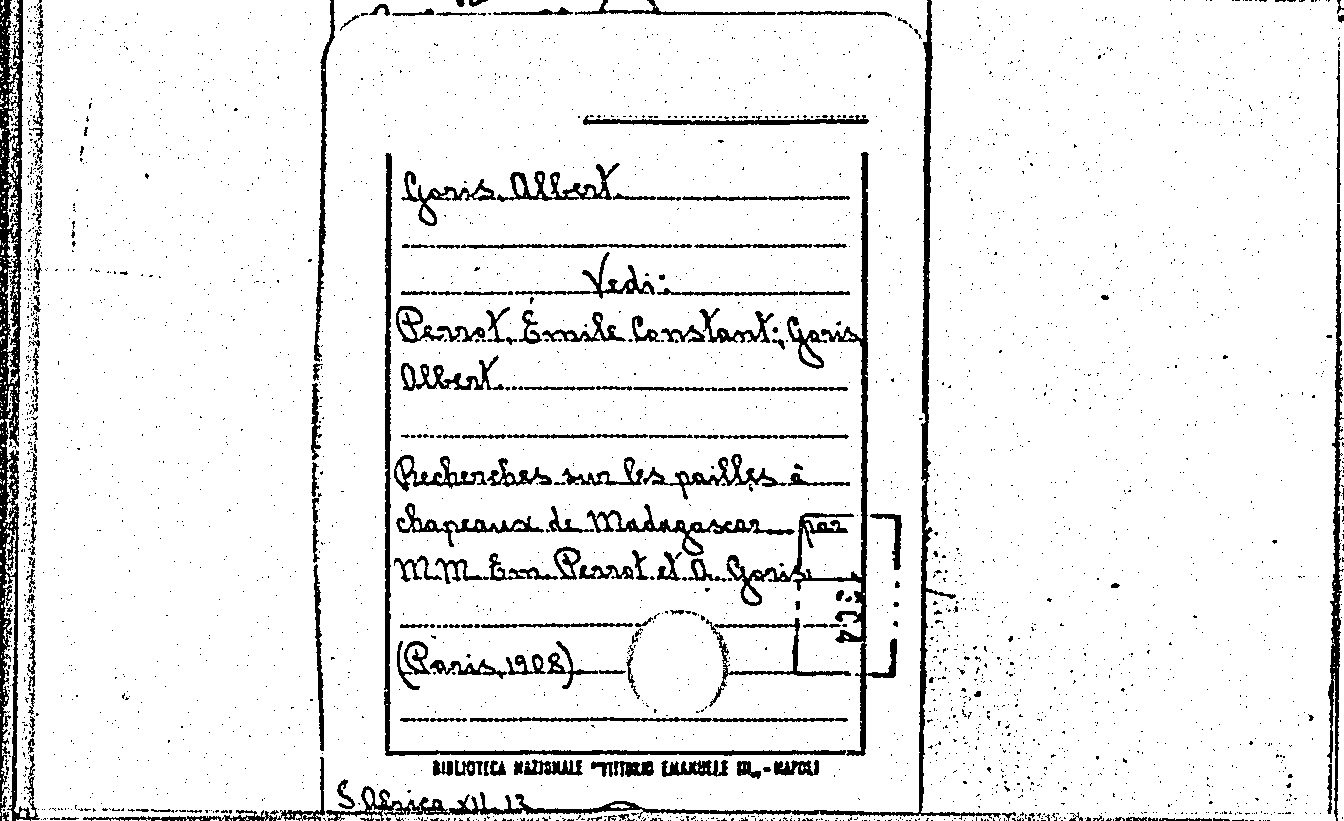 Goris, Albert.
Vedi:
Perrot, Émile Constant; Goris
Albert.
Recherches sur les pailles à
chapeaux de Madagascar par
MM. Em. Perrot et A. Goris.
(Paris, 1908).
BIBLIOTECA NAZIONALE "VITTORIO EMANUELE III„ - NAPOLI
S. Africa XII. 13